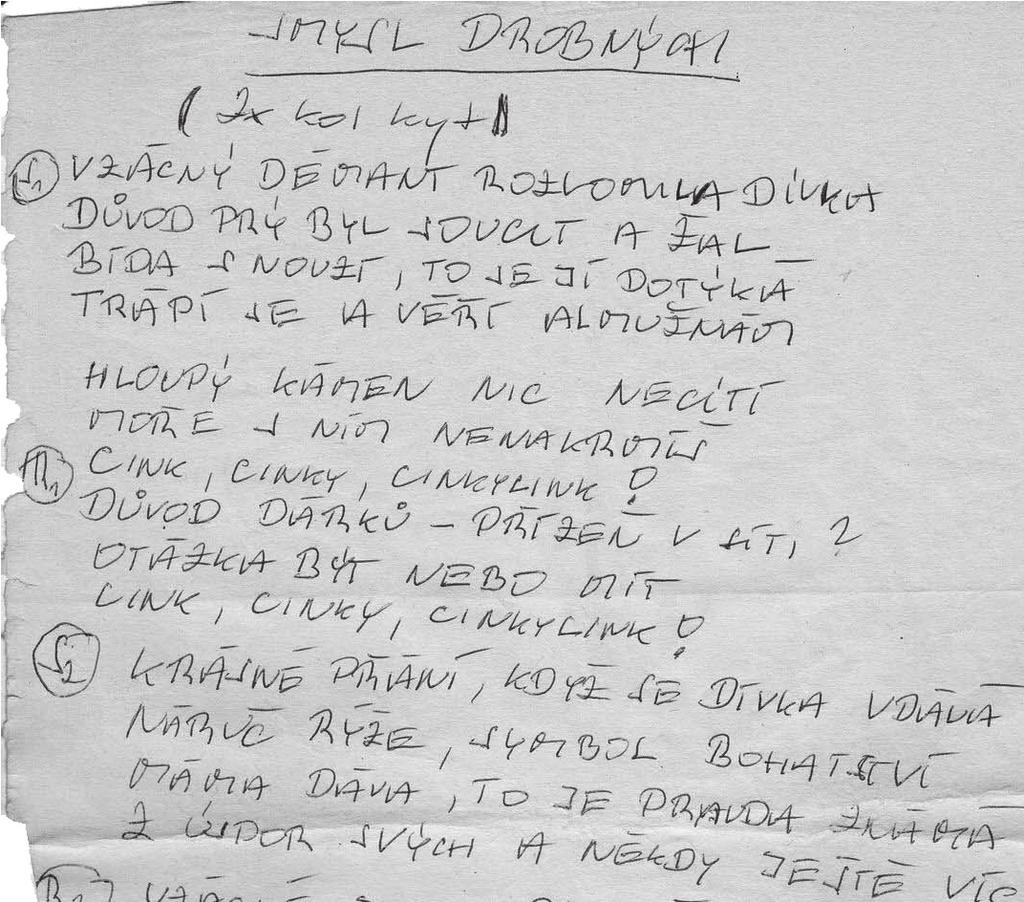 SMYSL DROBNÝCH
(2x kol kyt)
S1 VZÁCNÝ DÉMANT ROZLOMILA DÍVKA
DŮVOD PRÝ BYL SOUCIT A ŽAL
BÍDA S NOUZÍ, TO SE JÍ DOTÝKÁ
TRÁPÍ SE A VĚŘÍ ALMUŽNÁM
HLOUPÝ KÁMEN NIC NECÍTÍ
MOŘE S NÍM NENAKRMÍŠ
R1 CINK, CINKY, CINKYLINK!
DŮVOD DÁRKŮ – PŘÍZEŇ V SÍTI?
OTÁZKA BÝT NEBO MÍT
CINK, CINKY, CINKYLINK!
S2 KRÁSNÉ PŘÁNÍ, KDYŽ SE DÍVKA VDÁVÁ
NÁRUČ RÝŽE, SYMBOL BOHATSTVÍ
MÁMA DÁVÁ, TO JE PRAVDA ZNÁMÁ
Z ÚSPOR SVÝCH A NĚKDY JEŠTĚ VÍC